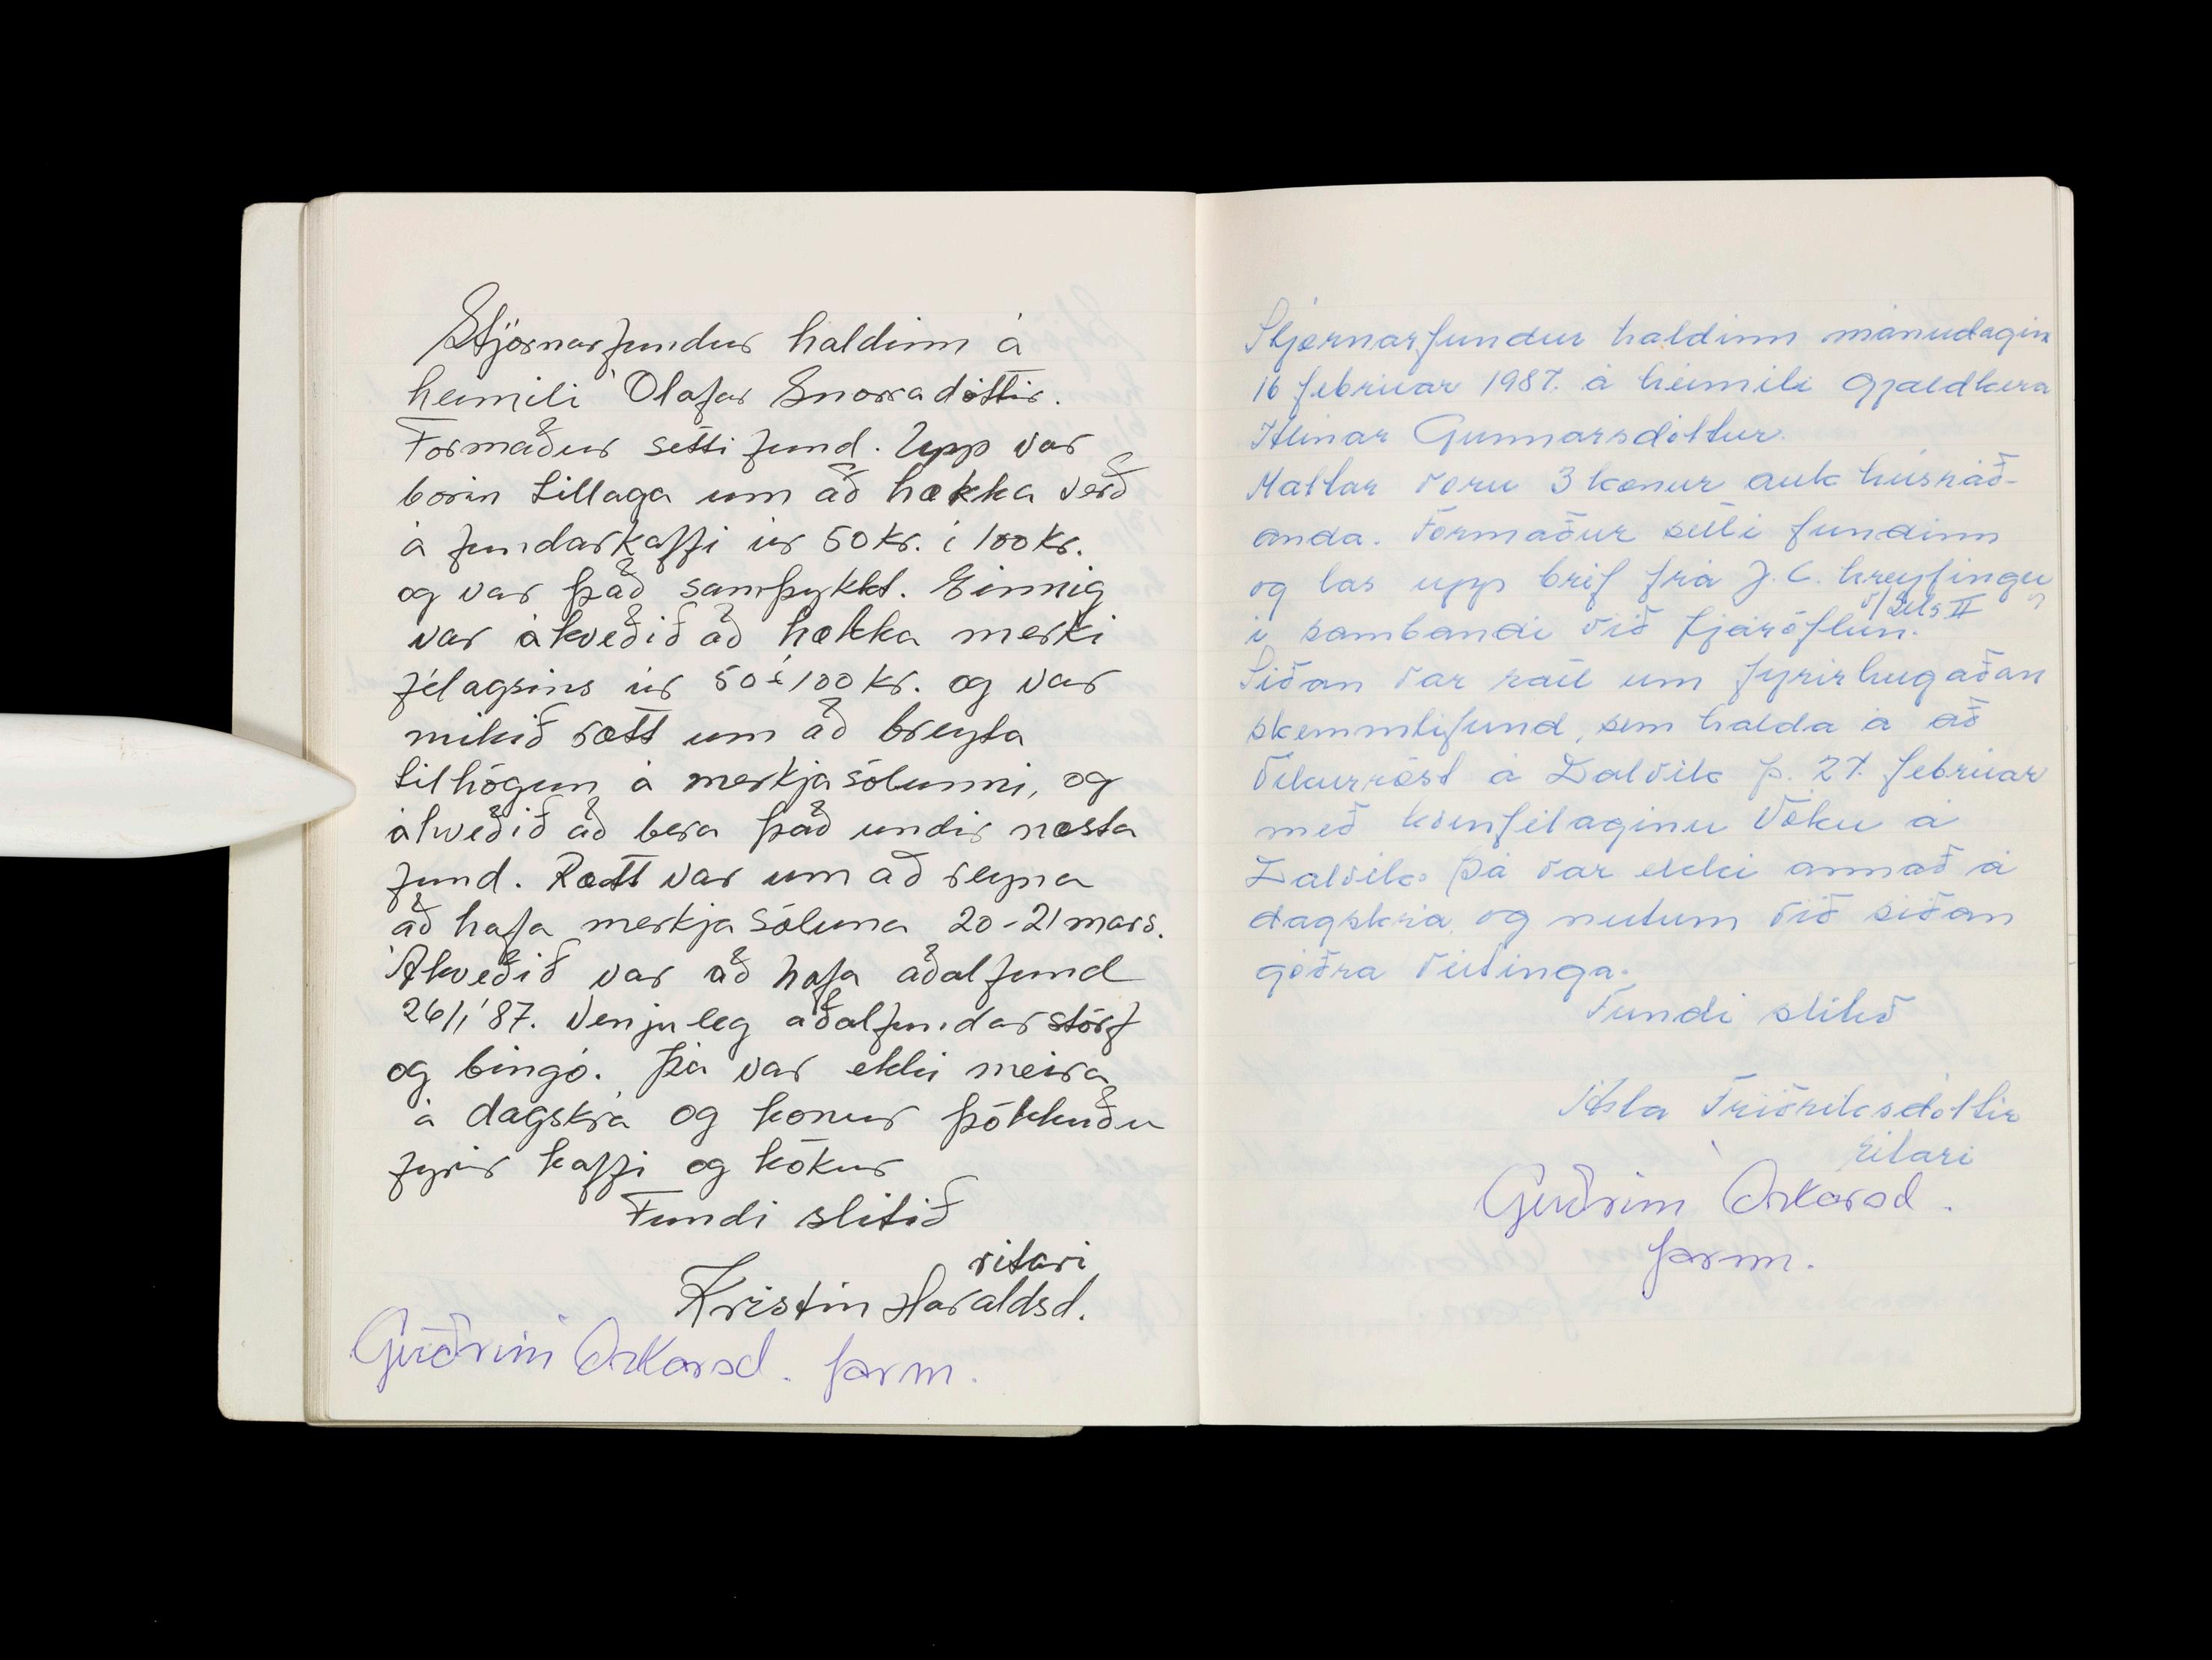 Stjórnarfundur haldinn á
heimili Ólafar Snorradóttir.
Formaður setti fund. Upp var
borin tillaga um að hækka verð
á fundarkaffi úr 50 kr. í 100 kr.
og var það samþykkt. Einnig
var ákveðið að hækka merki
félagsins úr 50 í 100 kr. og var
mikið rætt um að breyta
tilhögun á merkjasölunni, og
ákveðið að bera það undir næsta
fund. Rætt var um að reyna
að hafa merkjasöluna 20-21 mars.
Ákveðið var að hafa aðalfund
26/1 '87. Venjuleg aðalfundarstörf
og bingó. Þá var ekki meira
á dagskrá og konur þökkuðu
fyrir kaffi og kökur
Fundi slitið
ritari
Kristín Haraldsd.
Guðrún Óskarsd. form.
Stjórnarfundur haldinn mánudagin
16 febrúar 1987. á heimili Gjaldkera
Gunnarsdóttur.
Mættar voru 3 konur auk húsráð-
anda. Formaður setti fundinn
og las upp bréf frá J.C. hreyfingu
í sambandi við fjáröflun. v/ Sels II
Síðan var rætt um fyrirhugaðan
skemmtifund, sem halda á að
Víkurröst á Dalvík þ. 27. febrúar
með kvenfélaginu Vöku á
Dalvík. Þá var ekki annað á
dagskrá og nutum við síðan
góðra veitinga.
Fundi slitið
Ásta Friðriksdóttir
ritari
Guðrún Óskarsd.
form.